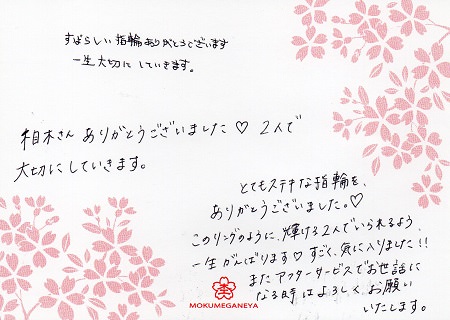 すばらしい指輪ありがとうございます
一生大切にしていきます。
柏木さん ありがとうございました♡ 2人で
大切にしていきます。
とてもステキな指輪を、
ありがとうございました。♡
このリングのように、輝ける2人でいられるよう、
一生がんばります♡ すごく、気に入りました!!
またアフターサービスでお世話に
なる時はよろしくお願い
いたします。
MOKUMEGANEYA